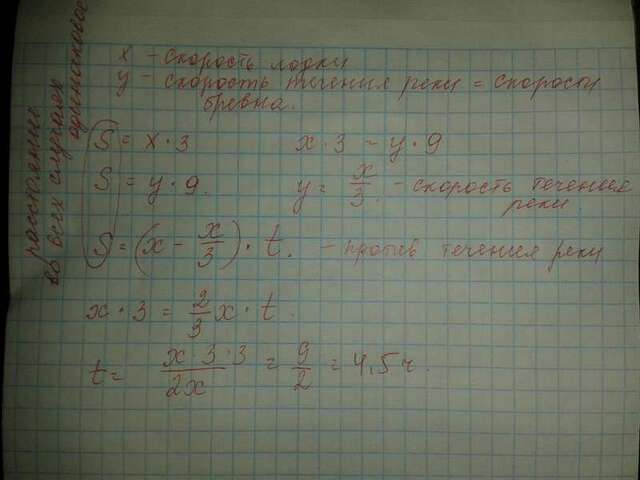 расстояние
во всех случаях
одинаковое
x - скорость лодки
y - скорость течения реки = скорости
бревна.
S = x · 3
x · 3 = y · 9
S = y · 9.
y = x/3 - скорость течения
реки.
S = (x - x/3) · t. - против течения реки
x · 3 = 2/3 x · t.
t = x·3·3/2x = 9/2 = 4,5 ч.